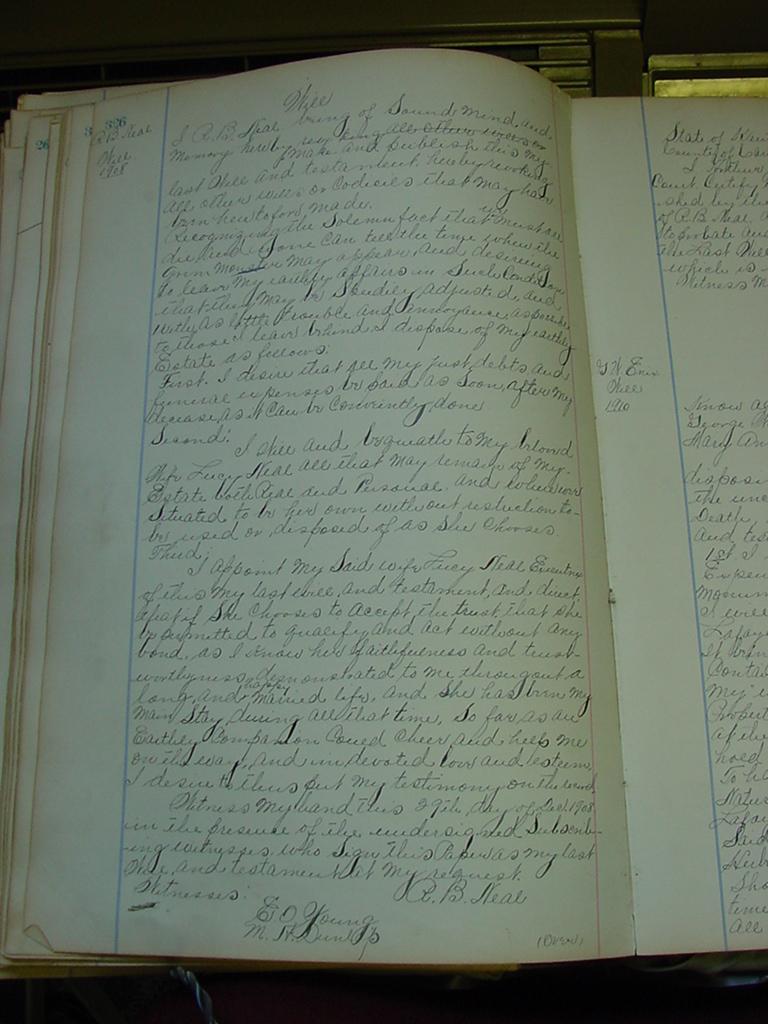 326
R B Neal
Will
1908
Will
I R. B. Neal being of Sound Mind and
Memory hereby revoking all other wills or
Make and publish this my
last Will and testament, hereby revoking
all other wills or Codicils that may have
been heretofore made.
Recognizing the Solemn fact that we must all
die and None can tell the time when the
Grim Monster May appear, and desiring
to leave My earthly affairs in Such Condition
that they May be Steadily adjusted, and
with as little trouble and annoyance as possible
to those I leave behind I dispose of My earthly
Estate as follows:
First. I desire that all My just debts and
funeral expenses be paid as Soon after My
decease as it Can be Conveniently done
Second:
I Will and bequeath to My beloved
Wife Lucy Neal all that May remain of My
Estate both Real and Personal and wherever
Situated to be her own without restriction to
be used or disposed of as She Chooses.
Third;
I appoint My Said wife Lucy Neal Executrix
of this My last will and testament, and direct
that if She Chooses to accept the trust, that She
be permitted to qualify and act without any
bond, as I know her faithfulness and trust-
worthyness demonstrated to me throughout a
long and happy Married life, and She has been My
Main Stay during all that time, So far as an
Earthly Companion Could Cheer and help me
on the way, and in devoted love and esteem,
I desire to thus put My testimony on the record
Witness My hand this 29th, day of Dec 1908
in the presence of the undersigned Subscrib-
ing witnesses, who Sign this Paper as My last
Will and testament at My request.
Witnesses: R. B. Neal
E O. Young
M. H. Dunlap
(Over)
State of
County of
I
Court Certify
of R. B Neal
to Probate and
the Last Will
which is
Witness M
Will
1910
Know a
George
Mary An
disposi
the un
Death,
and tes
1st I
Expen
Monum
I will
Lafay
It
Conta
My
Propert
of the
hold
To ha
Natur
Lafay
Said
Sho
time
all